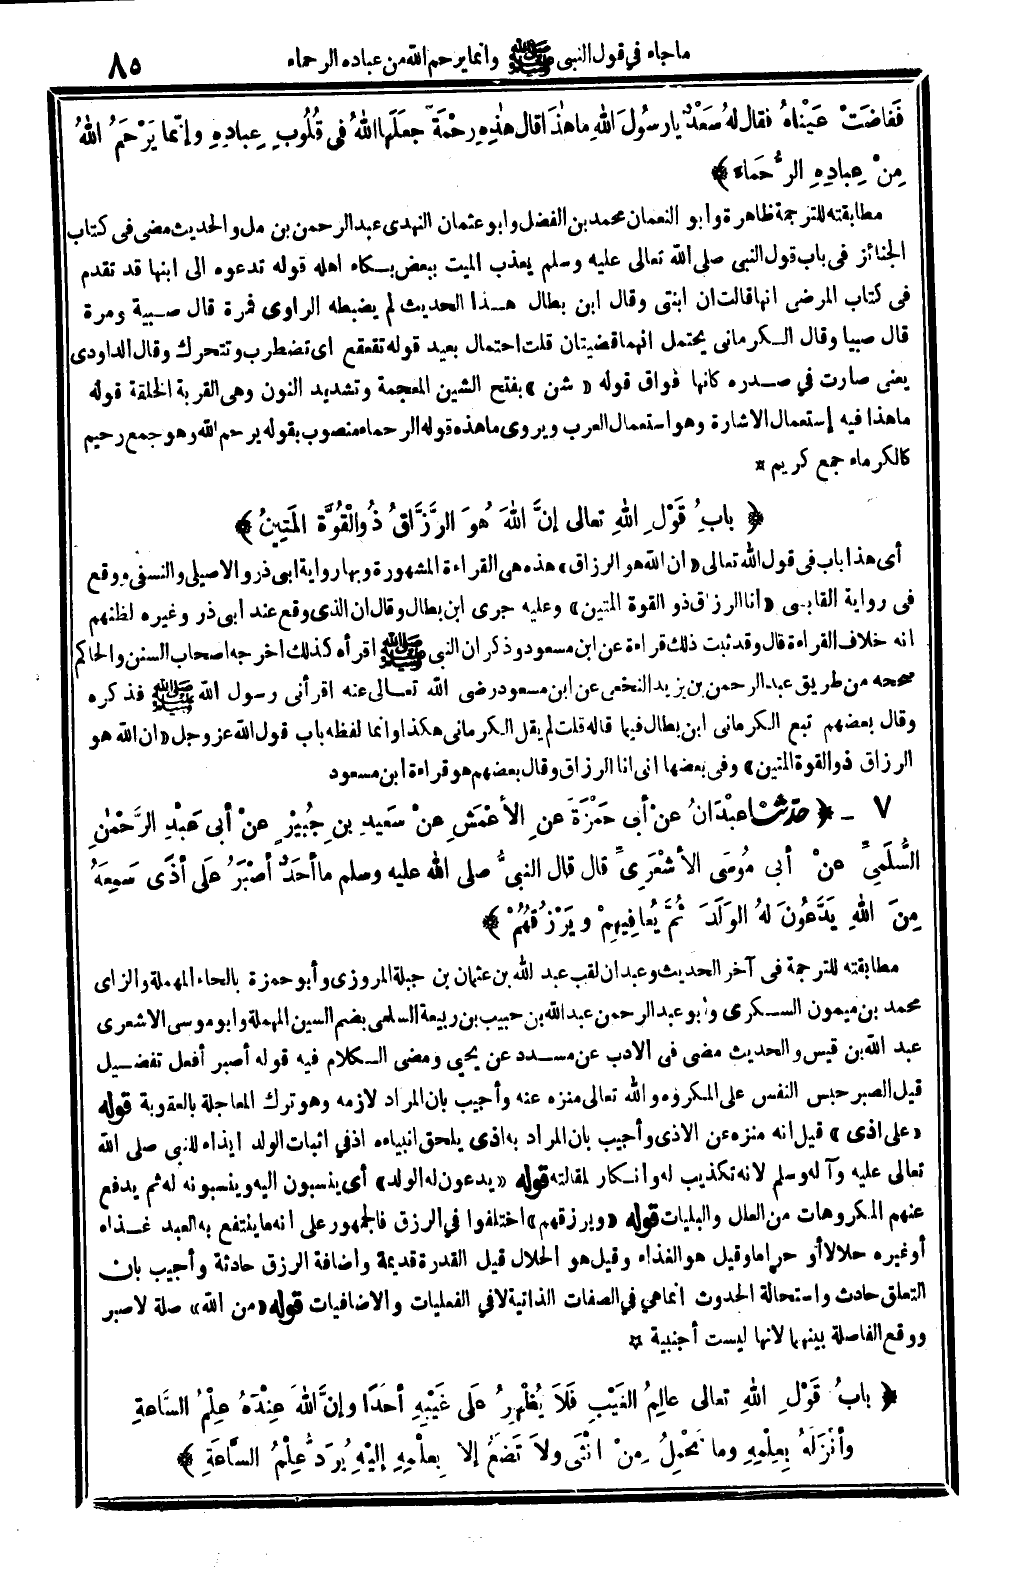 ماجاء في قول النبى ﷺ وانما يرحم الله من عباده الرحماء ٨٥
فَفَاضَتْ عَيْناهُ فقال لهُ سَعْدٌ يا رسُولَ اللهِ ما هٰذَا قال هٰذِهِ رحْمَةٌ جعَلَها اللهُ فى قُلُوبِ عِبادِهِ وإنّما يَرْحَمُ اللهُ
مِنْ عِبادِهِ الرُّحَماءَ ﴾
مطابقته للترجمة ظاهرة وابو النعمان محمد بن الفضل وابو عثمان النهدى عبد الرحمن بن مل والحديث مضى فى كتاب
الجنائز فى باب قول النبى صلى الله تعالى عليه وسلم يعذب الميت ببعض بكاء اهله قوله تدعوه الى ابنها قد تقدم
فى كتاب المرضى انها قالت ان ابنتى وقال ابن بطال هذا الحديث لم يضبطه الراوى فمرة قال صبية ومرة
قال صبيا وقال الكرمانى يحتمل انهما قضيتان قلت احتمال بعيد قوله تقعقع اى تضطرب وتتحرك وقال الداودى
يعنى صارت في صدره كانها فواق قوله « شن » بفتح الشين المعجمة وتشديد النون وهى القربة الخلقة قوله
ماهذا فيه إستعمال الاشارة وهو استعمال العرب ويروى ماهذه قوله الرحماء منصوب بقوله يرحم الله وهو جمع رحيم
كالكرماء جمع كريم ¤
﴿ بابُ قَوْلِ اللهِ تعالى إنَّ اللهَ هُوَ الرَّزَّاقُ ذُو الْقُوَّةِ المَتِينُ ﴾
أى هذا باب فى قول الله تعالى « ان الله هو الرزاق » هذه هى القراءة المشهورة وبها رواية ابى ذر والاصيلى والنسفى ووقع
فى رواية القابسى « أنا الرزاق ذو القوة المتين » وعليه جرى ابن بطال وقال ان الذى وقع عند ابى ذر وغيره لظنهم
انه خلاف القراءة قال وقد ثبت ذلك قراءة عن ابن مسعود وذكر ان النبى ﷺ اقرأه كذلك اخرجه اصحاب السنن والحاكم
صححه من طريق عبد الرحمن بن يزيد النخعى عن ابن مسعود رضى الله تعالى عنه اقرأنى رسول الله ﷺ فذكره
وقال بعضهم تبع الكرمانى ابن بطال فيما قاله قلت لم يقل الكرمانى هكذا وانما لفظه باب قول الله عز وجل « ان الله هو
الرزاق ذو القوة المتين » وفى بعضها انى انا الرزاق وقال بعضهم هو قراءة ابن مسعود
٧ ـ ﴿ حدثنا عبْدَانُ عنْ أبى حَمْزَةَ عنِ الأعْمَشِ عنْ سَعِيدِ بنِ جُبيْرٍ عنْ أبى عبْدِ الرَّحْمٰنِ
السُّلَمِىِّ عنْ أبى مُوسَى الأشْعَرِىِّ قال قال النبىُّ صلى الله عليه وسلم ما أحَدٌ أصْبَرُ علَى أذًى سَمِعَهُ
مِنَ اللهِ يَدَّعُونَ لهُ الوَلَدَ ثُمَّ يُعافِيهِمْ ويَرْزُقُهُمْ ﴾
مطابقته للترجمة فى آخر الحديث وعبدان لقب عبد الله بن عثمان بن جبلة المروزى وأبو حمزة بالحاء المهملة والزاى
محمد بن ميمون السكرى وأبو عبد الرحمن عبد الله بن حبيب بن ربيعة السلمى بضم السين المهملة وابو موسى الاشعرى
عبد الله بن قيس والحديث مضى فى الادب عن مسدد عن يحيى ومضى الكلام فيه قوله أصبر أفعل تفضيل
قيل الصبر حبس النفس على المكروه والله تعالى منزه عنه وأجيب بان المراد لازمه وهو ترك المعاجلة بالعقوبة قوله
« على اذى » قيل انه منزه عن الاذى وأجيب بان المراد به اذى يلحق انبياءه اذ في اثبات الولد ايذاء للنبى صلى الله
تعالى عليه وآله وسلم لانه تكذيب له وانكار لمقالته قوله « يدعون له الولد » أى ينسبون اليه وينسبونه له ثم يدفع
عنهم المكروهات من العلل والبليات قوله « ويرزقهم » اختلفوا في الرزق فالجمهور على انه ما ينتفع به العبد غذاء
أو غيره حلالا أو حراما وقيل هو الغذاء وقيل هو الحلال قيل القدرة قديمة واضافة الرزق حادثة وأجيب بان
التعلق حادث واستحالة الحدوث انما هي في الصفات الذاتية لا في الفعليات والاضافيات قوله « من الله » صلة لاصبر
ووقع الفاصلة بينهما لانها ليست أجنبية ¤
﴿ بابُ قَوْلِ اللهِ تعالى عالِمُ الغَيْبِ فَلاَ يُظْهِرُ علَى غَيْبِهِ أحَدًا وإنَّ اللهَ عِنْدَهُ عِلْمُ السَّاعةِ
وأنْزَلَهُ بِعِلْمِهِ وما تَحْمِلُ مِنْ انْثَى ولاَ تَضَعُ إلا بِعلْمِهِ إليْهِ يُرَدُّ عِلْمُ السَّاعَةِ ﴾